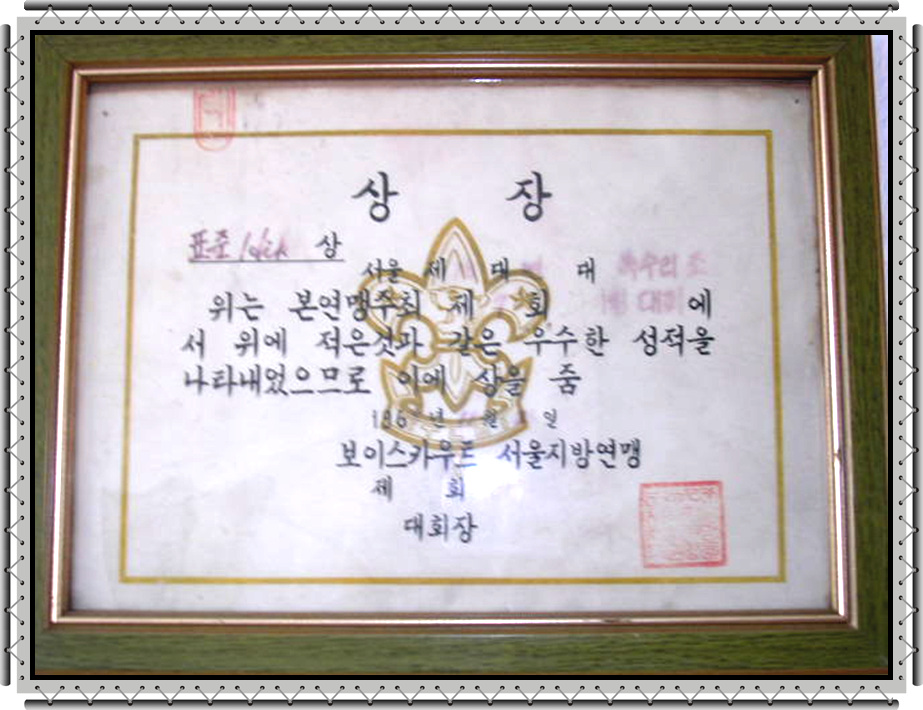 상 장
표준 상
서울 제 대 대 독수리 조
위는 본연맹주최 제 회 대회 에
서 위에 적은것과 같은 우수한 성적을
나타내었으므로 이에 상을 줌
196 년 월 일
보이스카우트 서울지방연맹
제 회
대회장